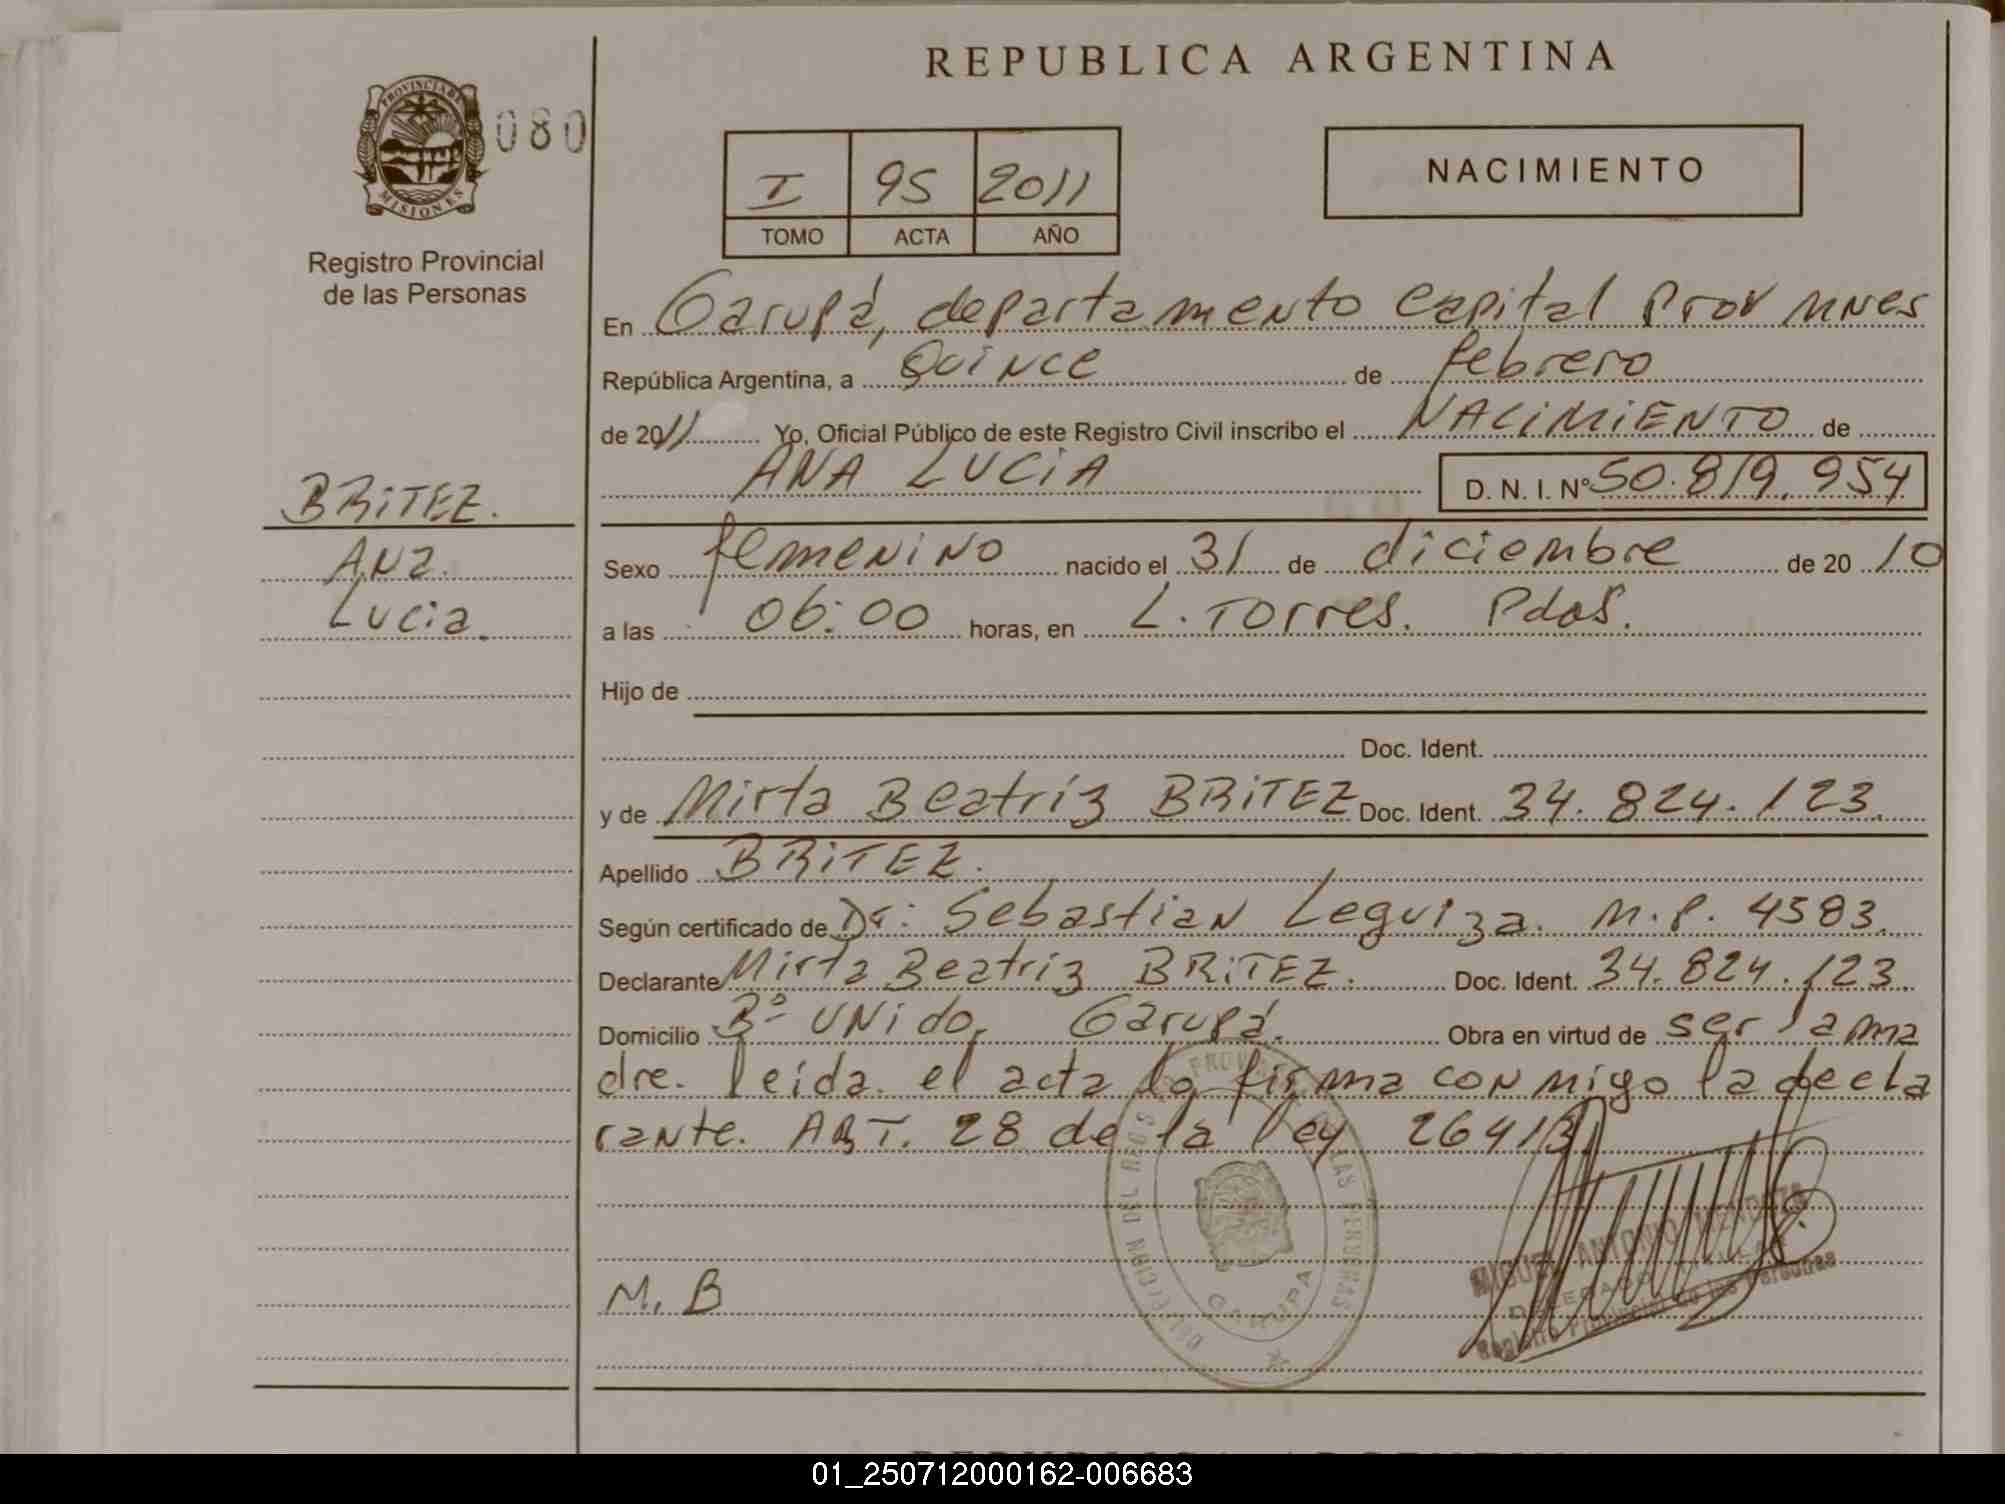 REPUBLICA ARGENTINA
PROVINCIA DE
MISIONES
080
Registro Provincial
de las Personas
I 95 2011
TOMO ACTA AÑO
NACIMIENTO
En Garupá, departamento Capital Prov Mnes
República Argentina, a Quince de febrero
de 2011 Yo, Oficial Público de este Registro Civil inscribo el NACIMIENTO de
ANA LUCIA D. N. I. Nº 50.819.954
BRITEZ.
Ana
Lucia.
Sexo femenino nacido el 31 de diciembre de 20 10
a las 06:00 horas, en L. Torres. Pdas.
Hijo de
Doc. Ident.
y de Mirta Beatriz BRITEZ Doc. Ident. 34.824.123.
Apellido BRITEZ.
Según certificado de Dr: Sebastian Leguiza. M.P. 4583.
Declarante Mirta Beatriz BRITEZ. Doc. Ident. 34.824.123.
Domicilio Bº Unido, Garupá. Obra en virtud de ser la ma
dre. leida el acta la firma conmigo la decla
rante. ART. 28 de la ley 26413
M. B
GARUPA
MIGUEL ANTONIO MENDOZA
DELEGADO TITULAR
Registro Provincial de las Personas
01_250712000162-006683